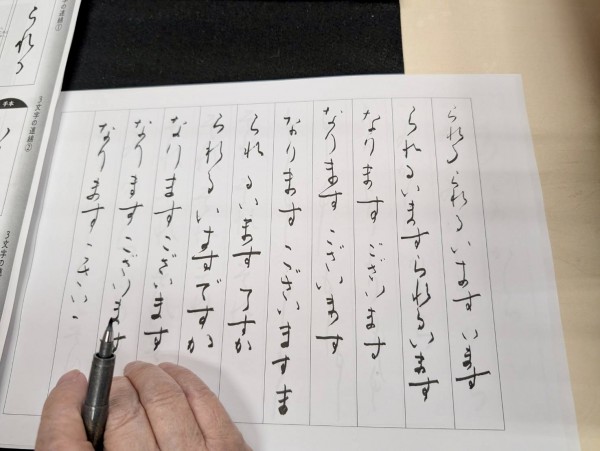 られるられるいますいます
られるいますられるいます
なりますございます
なりますございます
なりますございますま
られるいますですか
られるいますですか
なりますございます
なりますございます
なりますござい
文字の連綿①
られる
手本
3文字の連綿②
3文字の連